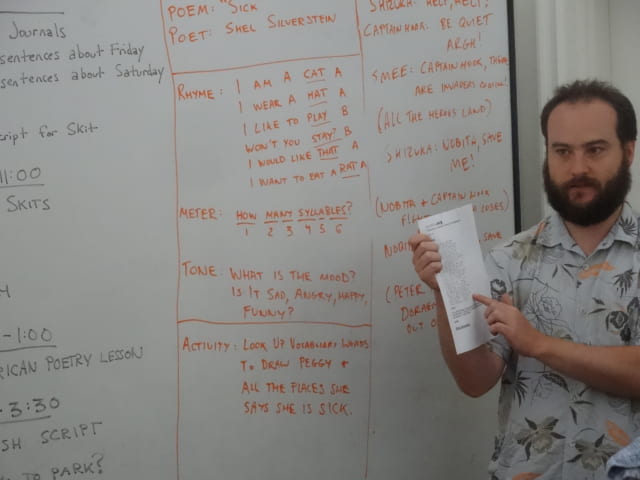 JOURNALS
sentences about Friday
sentences about Saturday
script for Skit
11:00
SKITS
-1:00
RICAN POETRY LESSON
3:30
SH SCRIPT
TO PARK?
POEM: "SICK
POET: SHEL SILVERSTEIN
RHYME: I AM A CAT A
I WEAR A HAT A
I LIKE TO PLAY B
WON'T YOU STAY? B
I WOULD LIKE THAT A
I WANT TO EAT A RAT A
METER: HOW MANY SYLLABLES?
1 2 3 4 5 6
TONE: WHAT IS THE MOOD?
IS IT SAD, ANGRY, HAPPY,
FUNNY?
ACTIVITY: LOOK UP VOCABULARY WORDS
TO DRAW PEGGY +
ALL THE PLACES SHE
SAYS SHE IS SICK.
SHIZUKA: HELP, HELP!
CAPTAIN HOOK: BE QUIET
ARGH!
SMEE: CAPTAIN HOOK, THERE
ARE INVADERS COMING!
(ALL THE HEROES LAND)
SHIZUKA: NOBITA, SAVE
ME!
(NOBITA + CAPTAIN HOOK
LOSES)
SAVE
(PETER
OUT